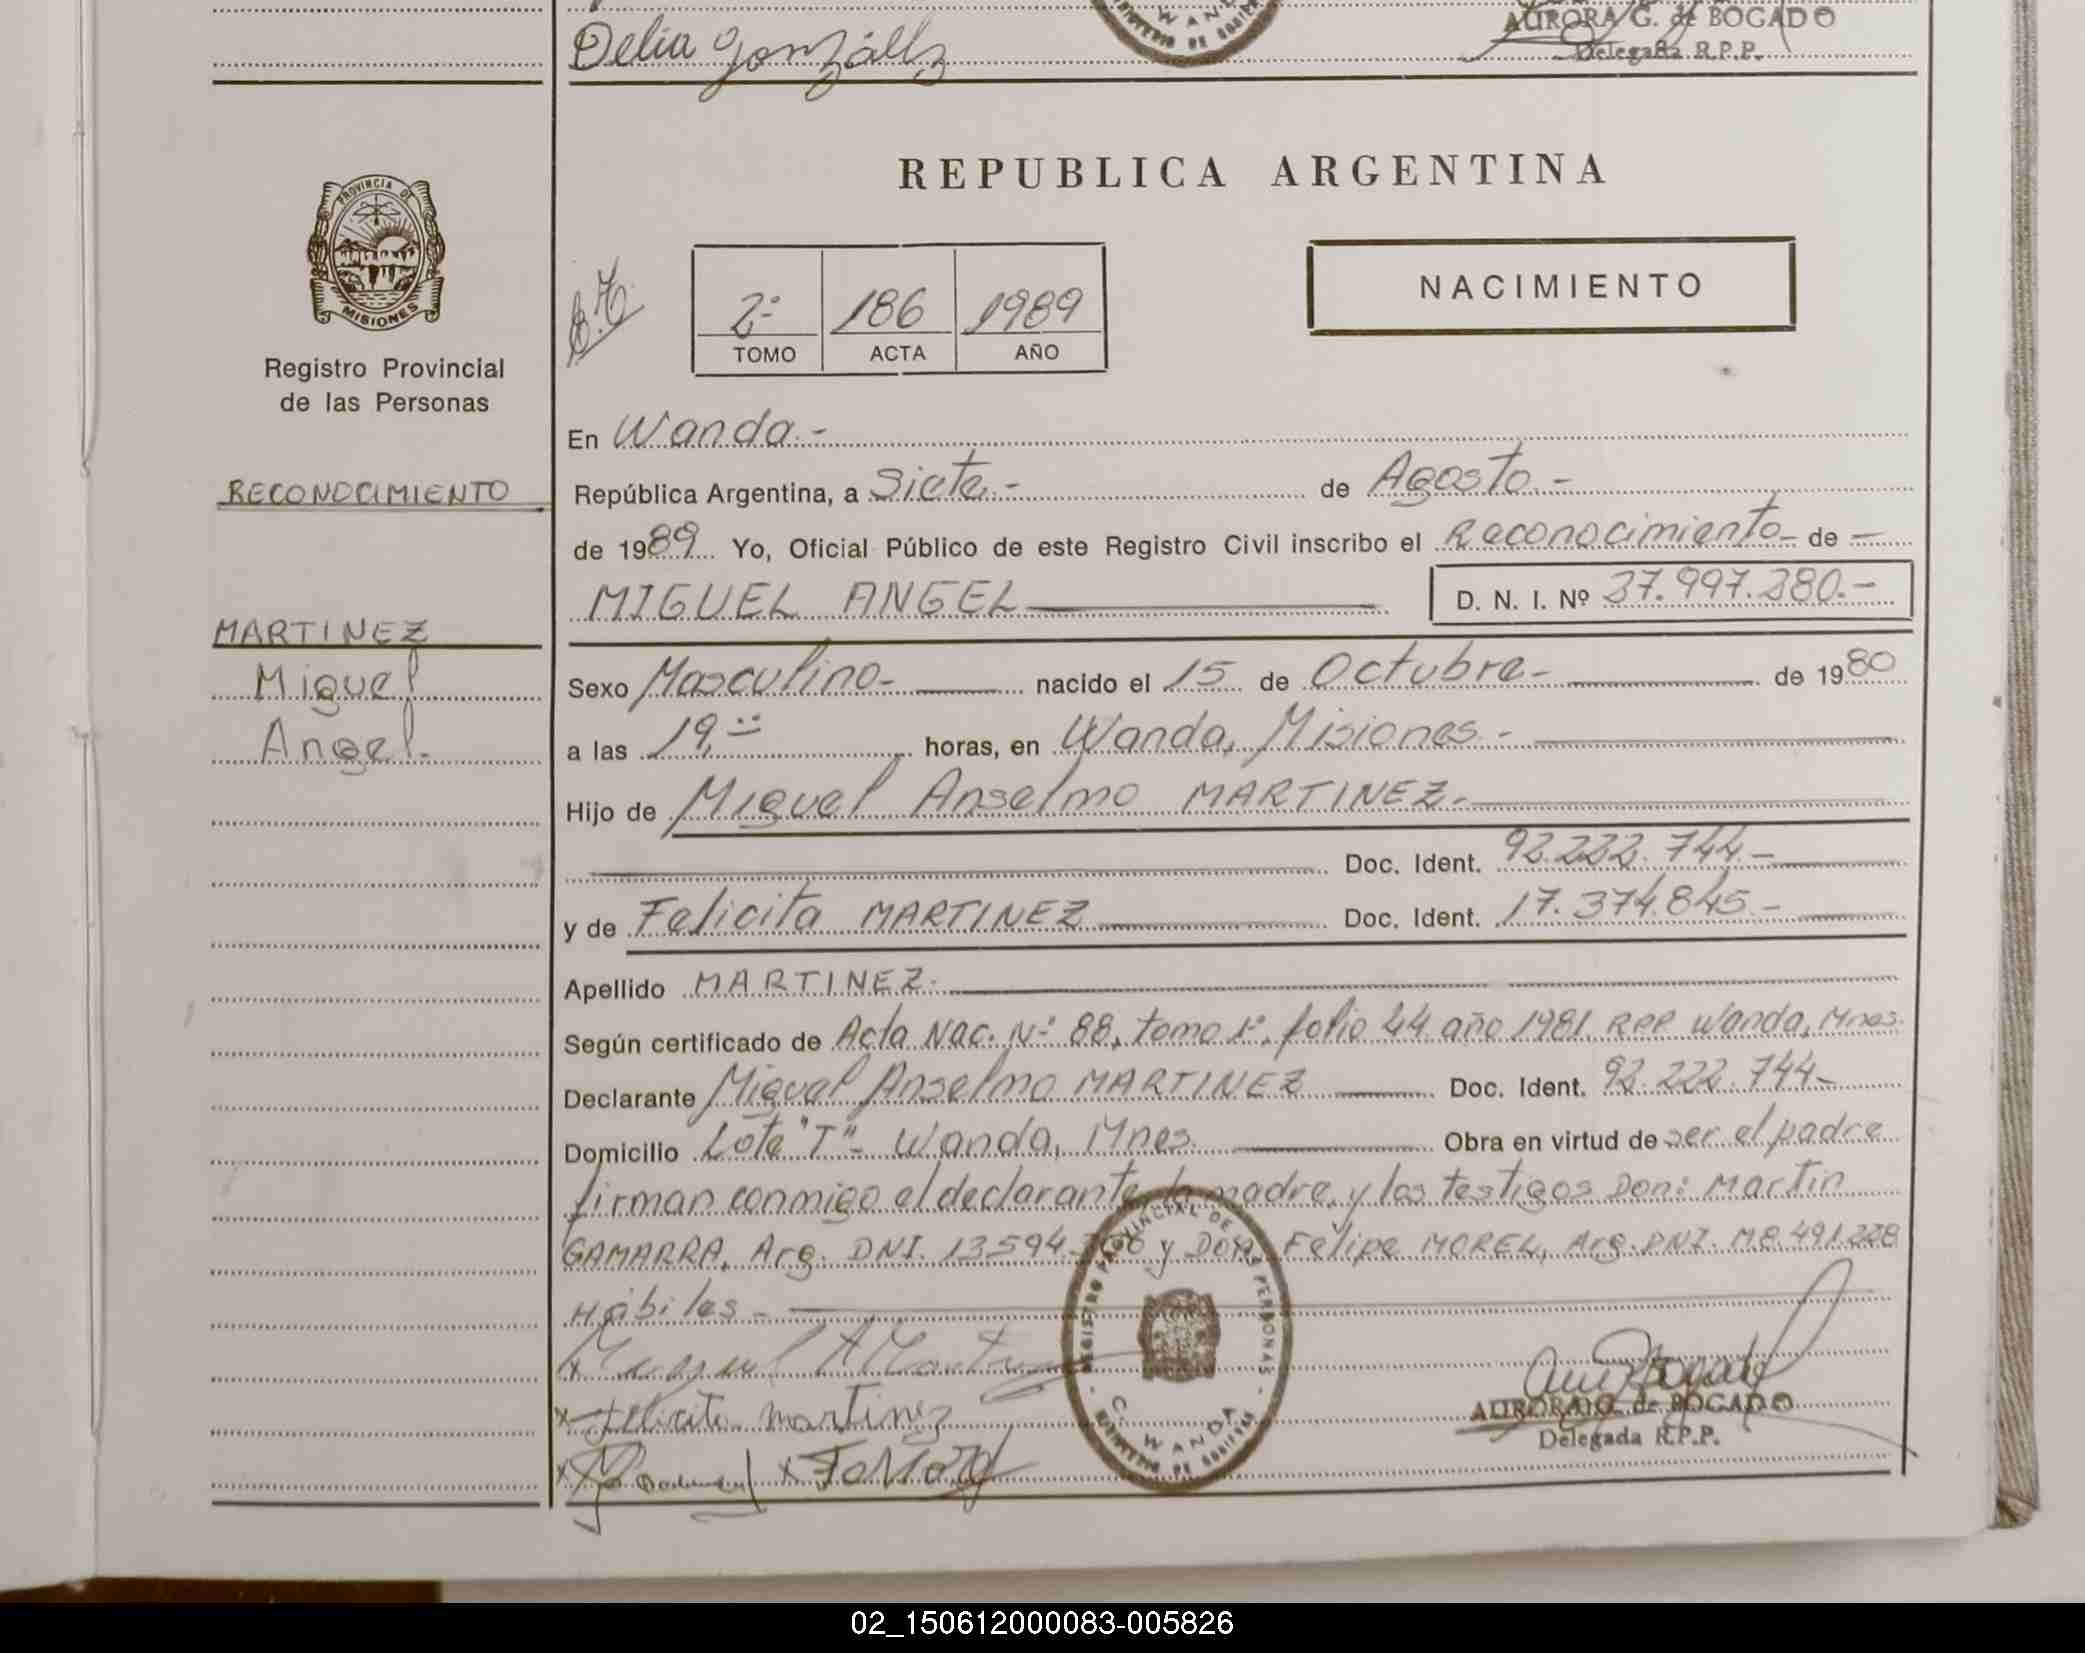 Delia González
WANDA
AURORA G. de BOGADO
Delegada R.P.P.
PROVINCIA DE
MISIONES
Registro Provincial
de las Personas
RECONOCIMIENTO
MARTINEZ
Miguel
Angel.-
REPUBLICA ARGENTINA
2º 186 1989
TOMO ACTA AÑO
NACIMIENTO
En Wanda.-
República Argentina, a Siete.- de Agosto.-
de 1989 Yo, Oficial Público de este Registro Civil inscribo el Reconocimiento- de -
MIGUEL ANGEL D. N. I. Nº 37.997.380.-
Sexo Masculino- nacido el 15 de Octubre- de 1980
a las 19,= horas, en Wanda, Misiones.-
Hijo de Miguel Anselmo MARTINEZ.-
Doc. Ident. 92.222.744.-
y de Felicita MARTINEZ Doc. Ident. 17.374.845.-
Apellido MARTINEZ.-
Según certificado de Acta Nac. Nº 88, tomo 1º, folio 44 año 1981, RPP Wanda, Mnes.
Declarante Miguel Anselmo MARTINEZ Doc. Ident. 92.222.744.-
Domicilio Lote "T"- Wanda, Mnes. Obra en virtud de ser el padre
firman conmigo el declarante, la madre, y los testigos Don: Martin
GAMARRA, Arg. DNI. 13.594. y Don Felipe MOREL, Arg. DNI. M8.491.228
Hábiles.-
Miguel A Martinez
x Felicita martinez
REGISTRO PROVINCIAL DE LAS PERSONAS
WANDA
AURORA G. de BOGADO
Delegada R.P.P.
02_150612000083-005826